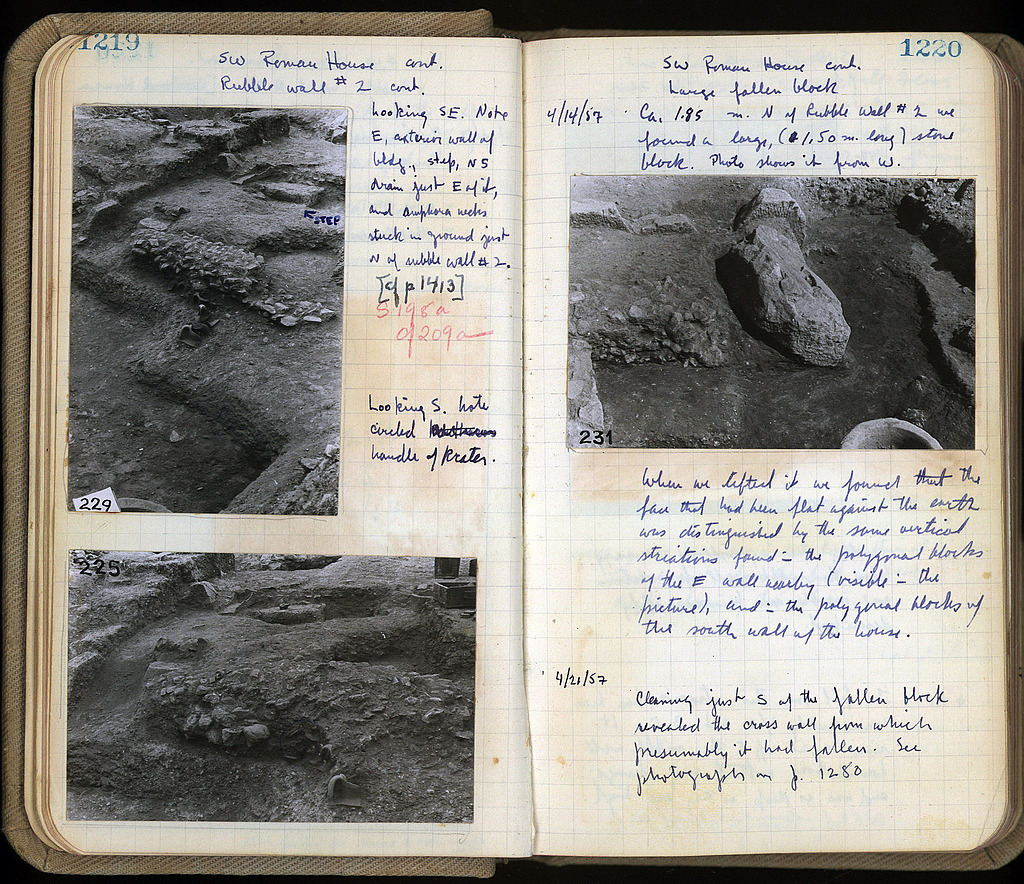 1219
SW Roman House cont.
Rubble wall #2 cont.
Looking SE. Note
E, exterior wall of
bldg., step, NS
drain just E of it,
and amphora necks
stuck in ground just
N of rubble wall #2.
[cf p 1413]
STEP
229
Looking S. Note
circled
handle of Krater.
225
1220
SW Roman House cont.
Large fallen block
4/14/57 Ca. 1.85 m. N of Rubble Wall #2 we
found a large, (1.50 m. long) stone
block. Photo shows it from W.
231
When we lifted it we found that the
face that had been flat against the earth
was distinguished by the same vertical
striations found - the polygonal blocks
of the E wall nearby (visible - the
picture), and - the polygonal blocks of
the south wall of the house.
4/21/57
Cleaning just S of the fallen block
revealed the cross wall from which
presumably it had fallen. See
photograph on p. 1280